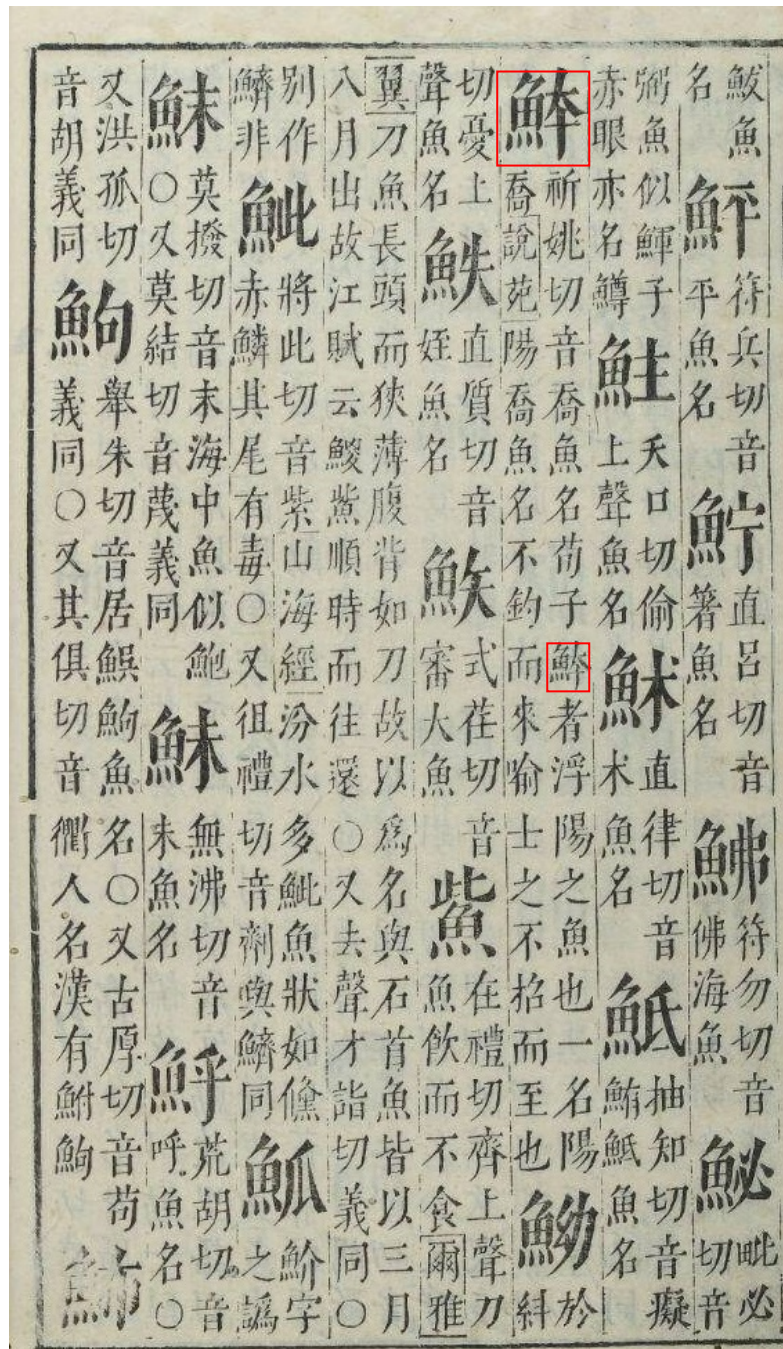 鮁魚名 鮃符兵切音平魚名 直呂切音箸魚名 鮄符勿切音佛海魚 鮅毗必切音
弼魚似鯶子赤眼亦名鱒 天口切偷上聲魚名 直律切音术魚名 抽知切音癡鮪魚名
祈姚切音喬魚名荀子者浮陽之魚也一名陽喬說苑陽喬魚名不釣而來喻士之不招而至也 於糾
切憂上聲魚名 直質切音姪魚名 式荏切音審大魚 鮆在禮切齊上聲刀魚飲而不食爾雅
翼刀魚長頭而狹薄腹背如刀故以爲名與石首魚皆以三月八月出故江賦云鯼鮆順時而往還○又去聲才詣切義同○
別作鱭非 將此切音紫山海經汾水多魚狀如儵赤鱗其尾有毒○又徂禮切音劑與鱭同 魪字之譌
莫撥切音末海中魚似鮑○又莫結切音蔑義同 鮇無沸切音未魚名 荒胡切音呼魚名○
又洪孤切音胡義同 鮈舉朱切音居鮈魚名○又古厚切音苟義同○又其俱切音衢人名漢有鮒鮈